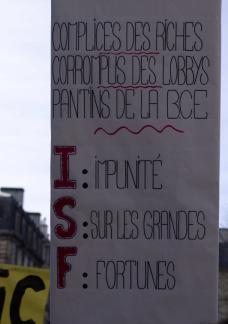 COMPLICES DES RICHES
CORROMPUS DES LOBBYS
PANTINS DE LA BCE
I : IMPUNITÉ
S : SUR LES GRANDES
F : FORTUNES